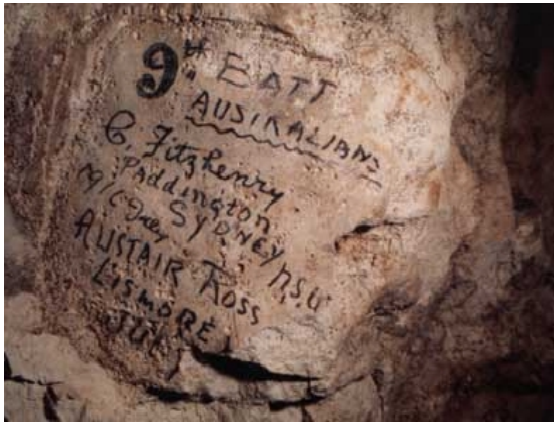 9TH BATT
AUSTRALIANS
C. Fitzhenry
Paddington
SYDNEY N.S.W
ALISTAIR ROSS
LISMORE
JULY